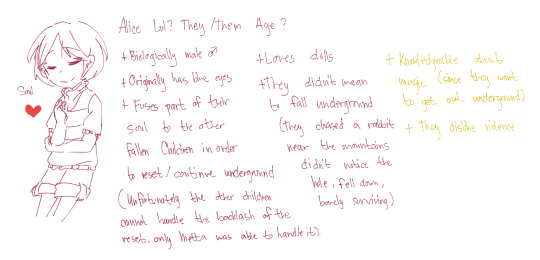 Alice Lul? They/them Age?
+ Biologically male ♂
+ Originally has blue eyes
+ Fuses part of their
soul to the other
fallen Children in order
to reset/continue underground
(Unfortunately the other children
cannot handle the backlash of the
reset, only Metta was able to handle it)
+ Loves dolls
+ They didn't mean
to fall underground
(They chased a rabbit
near the mountains
didn't notice the
hole, fell down,
barely surviving)
+ Knowledgeable about
magic (since they want
to get out underground)
+ They dislike violence
Soul